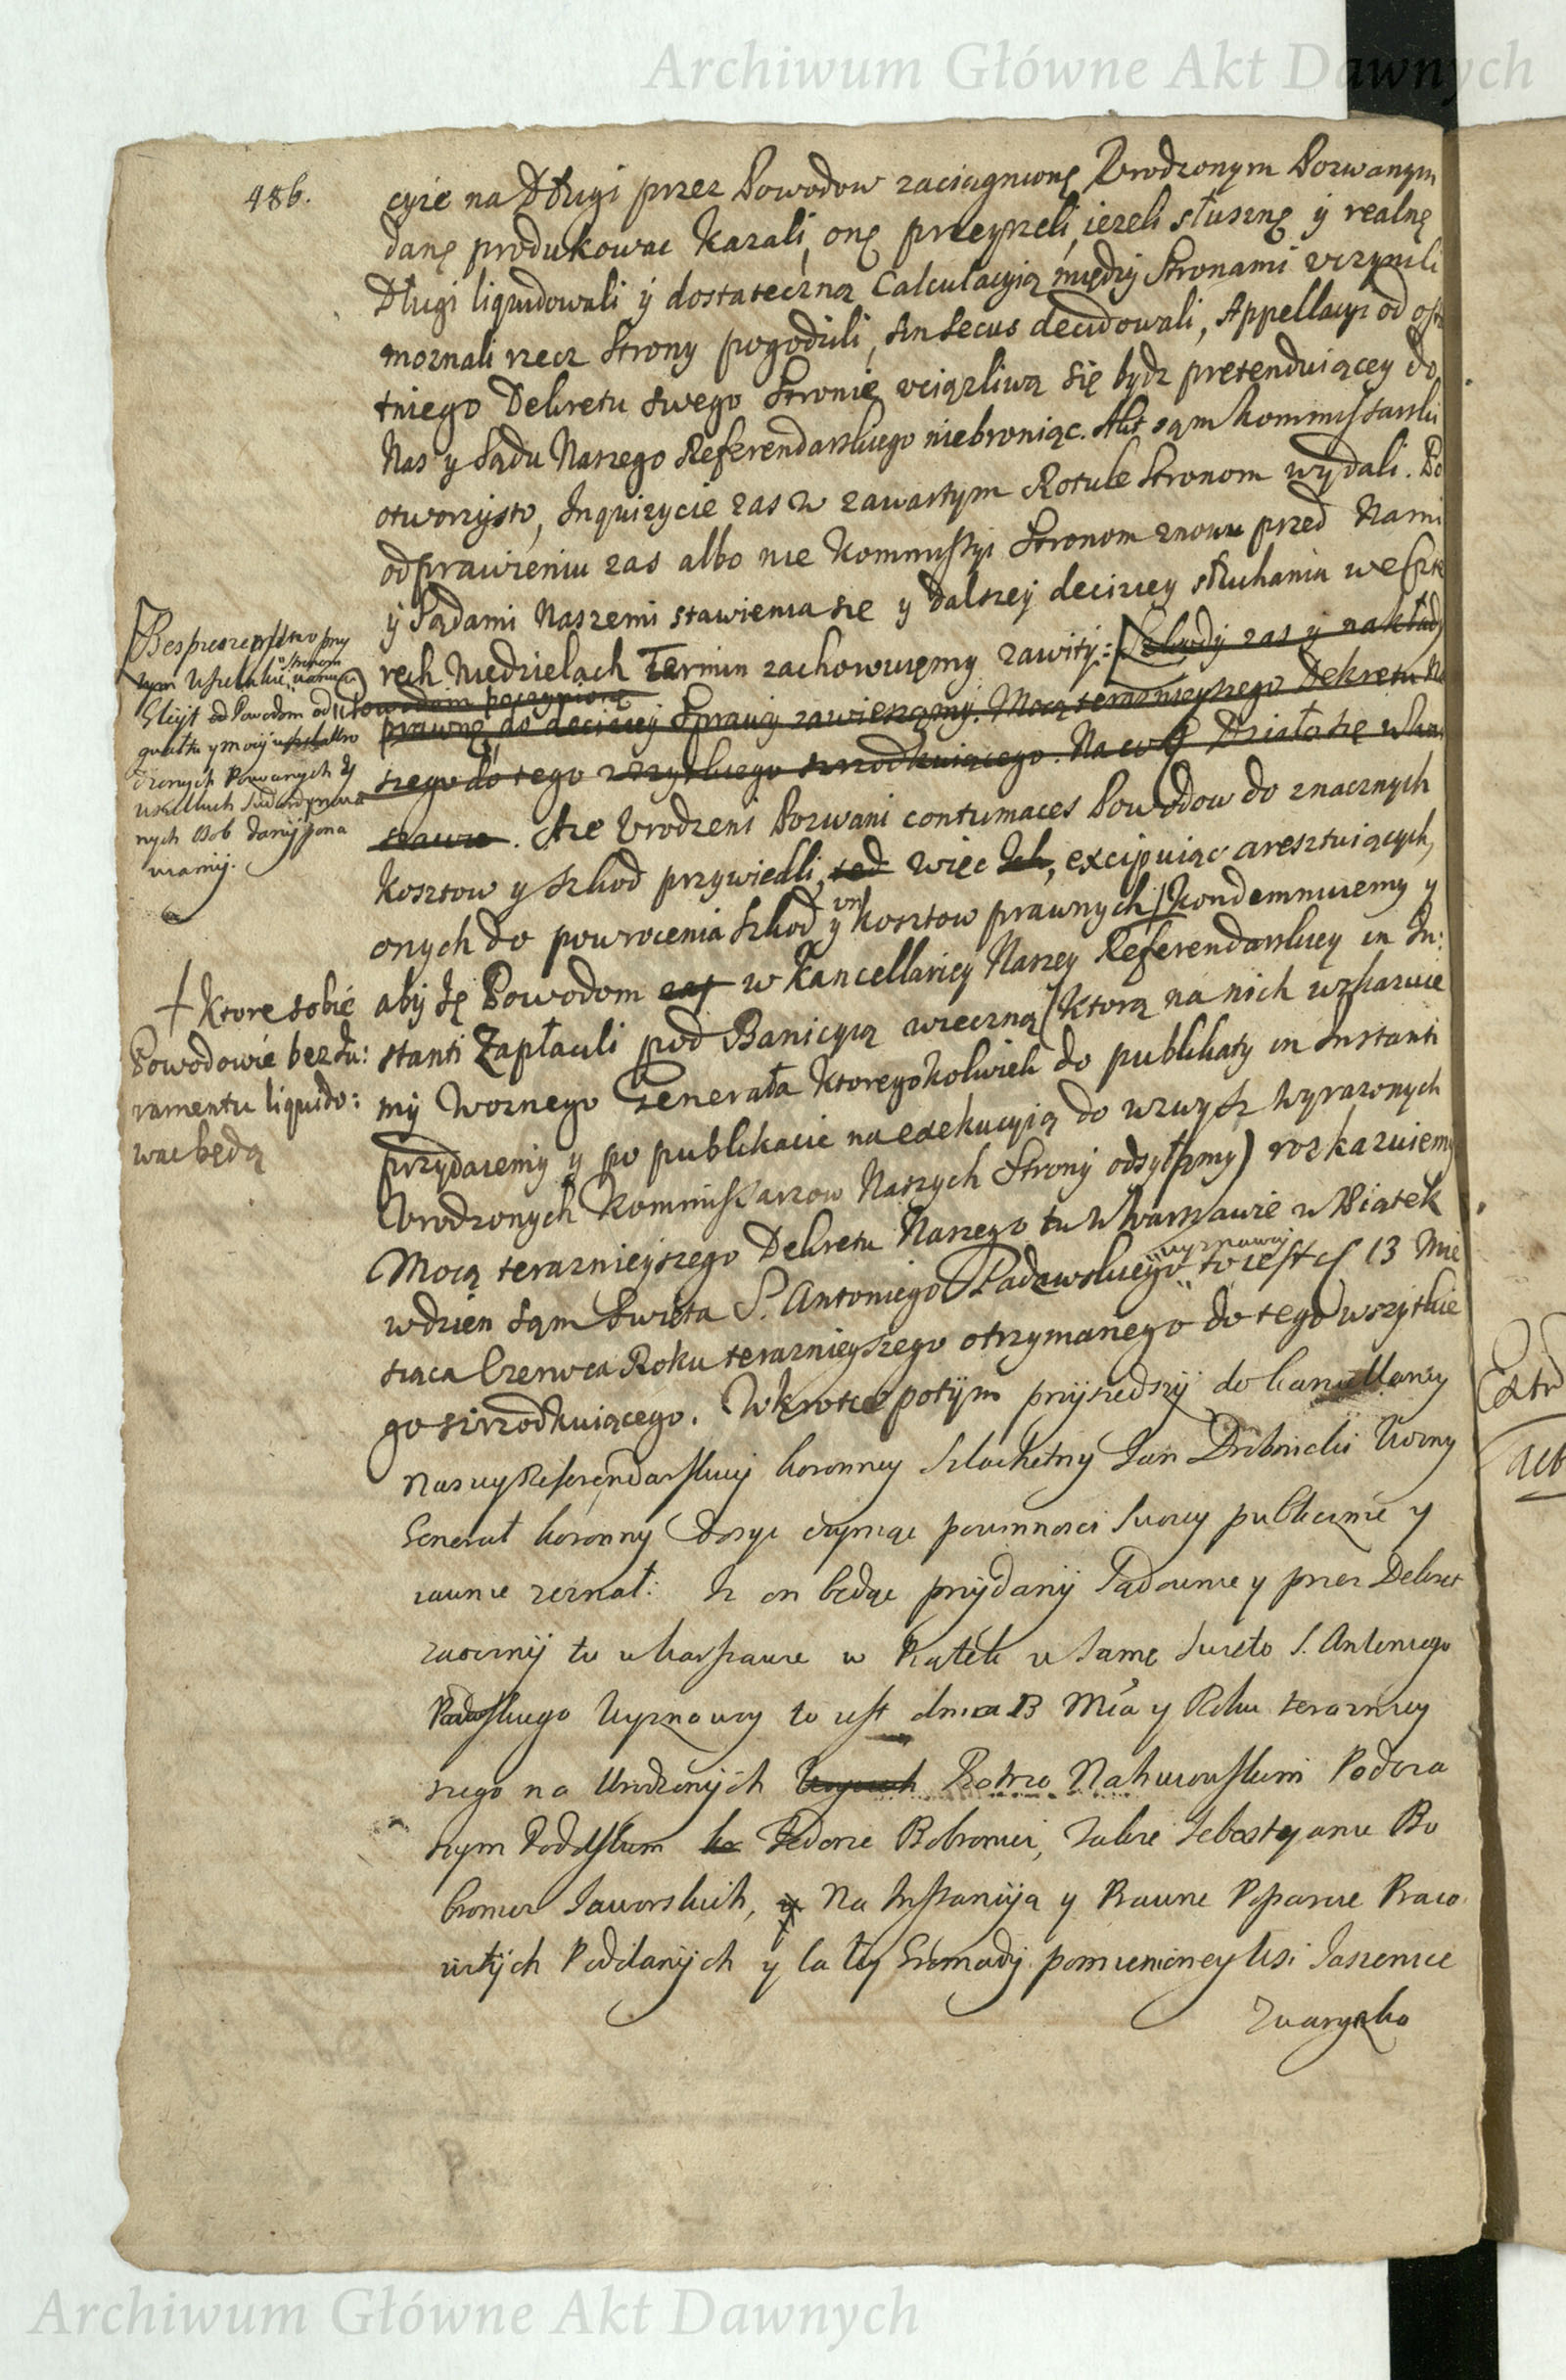 Archiwum Główne Akt Dawnych
486.
cyie na Długi przez Powodow zaciągnionę Urodzonym Pozwanym
danę produkowac kazali, onę przeyrzeli, iezeli słusznę y realnę
Długi liquidowali y dostateczną Calculacyią między Stronami uczynili
moznali rzecz Strony pogodzili, Insecus decidowali, Appellacyi od osta
tniego Dekretu swego Stronie uciązliwą się bydz pretenduiącey do
Nas y Sądu Naszego Referendarskiego niebroniąc. Akt sąm Kommissarski
otworzysto, Inquizycie zas w zawartym Rotule Stronom wydali. Po
odprawieniu zas albo nie Kommissyi Stronom znowu przed Nami
y Sądami Naszemi stawienia się y dalszey decizyey słuchania we czte
rech Niedzielach Termin zachowuięmy zawity: Szkody zas y nakłady
Powodom poczynione
prawnę do decizyey Sprawy zawieszamy. Mocą teraznieyszego Dekretu Na
szego do tego wszytkiego srzodkuiącego. Na co Działo się w War
szawie. Aze Urodzeni Pozwani contumaces Powodow do znacznych
Kosztow y szkod przywiedli, ted więc Ich, excipuiąc aresztuiących,
onych do powrocenia szkod y kosztow prawnych Kondemnuiemy y
aby Ię Powodom zas w Kancellariey Naszey Referendarskiey in In:
stanti Zapłacili pod Banicyią wieczną (ktorą na nich wskazuie
my Woznego Generała ktoregokolwiek do publikaty in Instanti
przydaiemy y po publikacie na exekucyią do wzwysz wyrazonych
Urodzonych Kommissarzow Naszych Strony odsyłamy) roskazuiemy
Mocą teraznieyszego Dekretu Naszego tu w Warszawie w Piątek
wyznawcy
w dzien sąm Swięta S. Antoniego Padewskiego to iest 13 Mie
siąca Czerwca Roku teraznieyszego otrzymanego do tego wszytkie
go srzodkuiącego. Wkrotce potym przyszedszy do kancellaryi
Naszey Referendarskiey koronney Szlachetny Jan Drobnicki Wozny
Generał koronny dosyc czyniąc powinnosci swoiey publicznie y
iawnie zeznał: Iz on będąc przydany Sądownie y przez Dekret
zaoczny tu w Warszawie w Piątek w samę Swięto S. Antoniego
Padewskiego Wyznawcy to iest dnia 13 Mca y Roku terazniey
szego na Urodzonych Piotrze Nakwowskim Podcza
szym Podolskim Fedorze Bobronici, Jakie Sebastyanie Bo
bronici Jaworskich, Na Instancyią y Prawne Poparcie Praco
witych Poddanych y całey Gromady pomienioney Wsi Jasienice
Zwaryczka
Bespieczenstwo przy
tym Wszelkie stronom
Gleyt Powodom od
gwałtu y mocy Uro
dzonych Pozwanych y
wszelkich Subordynowa
nych osob dany pona
wiamy.
Ktore sobie
Powodowie bez Iu:
ramentu liquido:
wac będą
Extr
Archiwum Główne Akt Dawnych